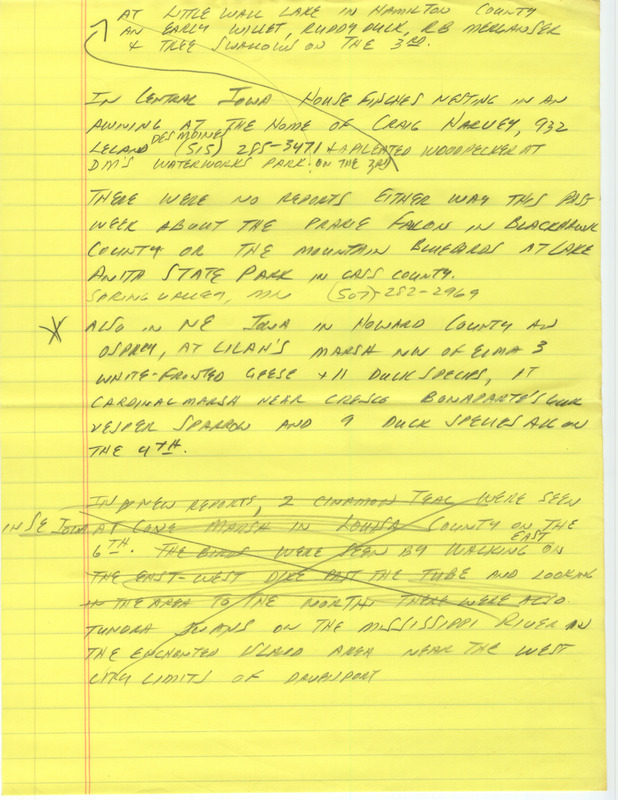 AT LITTLE WALL LAKE IN HAMILTON COUNTY
AN EARLY WILLET, RUDDY DUCK, RB MERGANSER
+ TREE SWALLOWS ON THE 3RD.
IN CENTRAL IOWA HOUSE FINCHES NESTING IN AN
AWNING AT THE HOME OF CRAIG HARVEY, 932
LELAND DES MOINES (515) 285-3471 + A PILEATED WOODPECKER AT
DM'S WATERWORKS PARK ON THE 3RD
THERE WERE NO REPORTS EITHER WAY THIS PAST
WEEK ABOUT THE PRARIE FALCON IN BLACKHAWK
COUNTY OR THE MOUNTAIN BLUEBIRDS AT LAKE
ANITA STATE PARK IN CASS COUNTY.
SPRING VALLEY, MN (507)-282-2969
* ALSO IN NE IOWA IN HOWARD COUNTY AN
OSPREY, AT LILAH'S MARSH NW OF ELMA 3
WHITE-FRONTED GEESE + 11 DUCK SPECIES, AT
CARDINAL MARSH NEAR CRESCO BONAPARTE'S GULL
VESPER SPARROW AND 9 DUCK SPECIES ALL ON
THE 4TH.
IN NEW REPORTS, 2 CINAMON TEAL WERE SEEN
IN SE IOWA AT CONE MARSH IN LOUISA COUNTY ON THE
6TH. THE BIRDS WERE SEEN BY WALKING EAST ON
THE EAST-WEST DIKE PAST THE TUBE AND LOOKING
IN THE AREA TO THE NORTH THERE WERE ALSO
TUNDRA SWANS ON THE MISSISSIPPI RIVER IN
THE ENCHANTED ISLAND AREA NEAR THE WEST
CITY LIMITS OF DAVENPORT